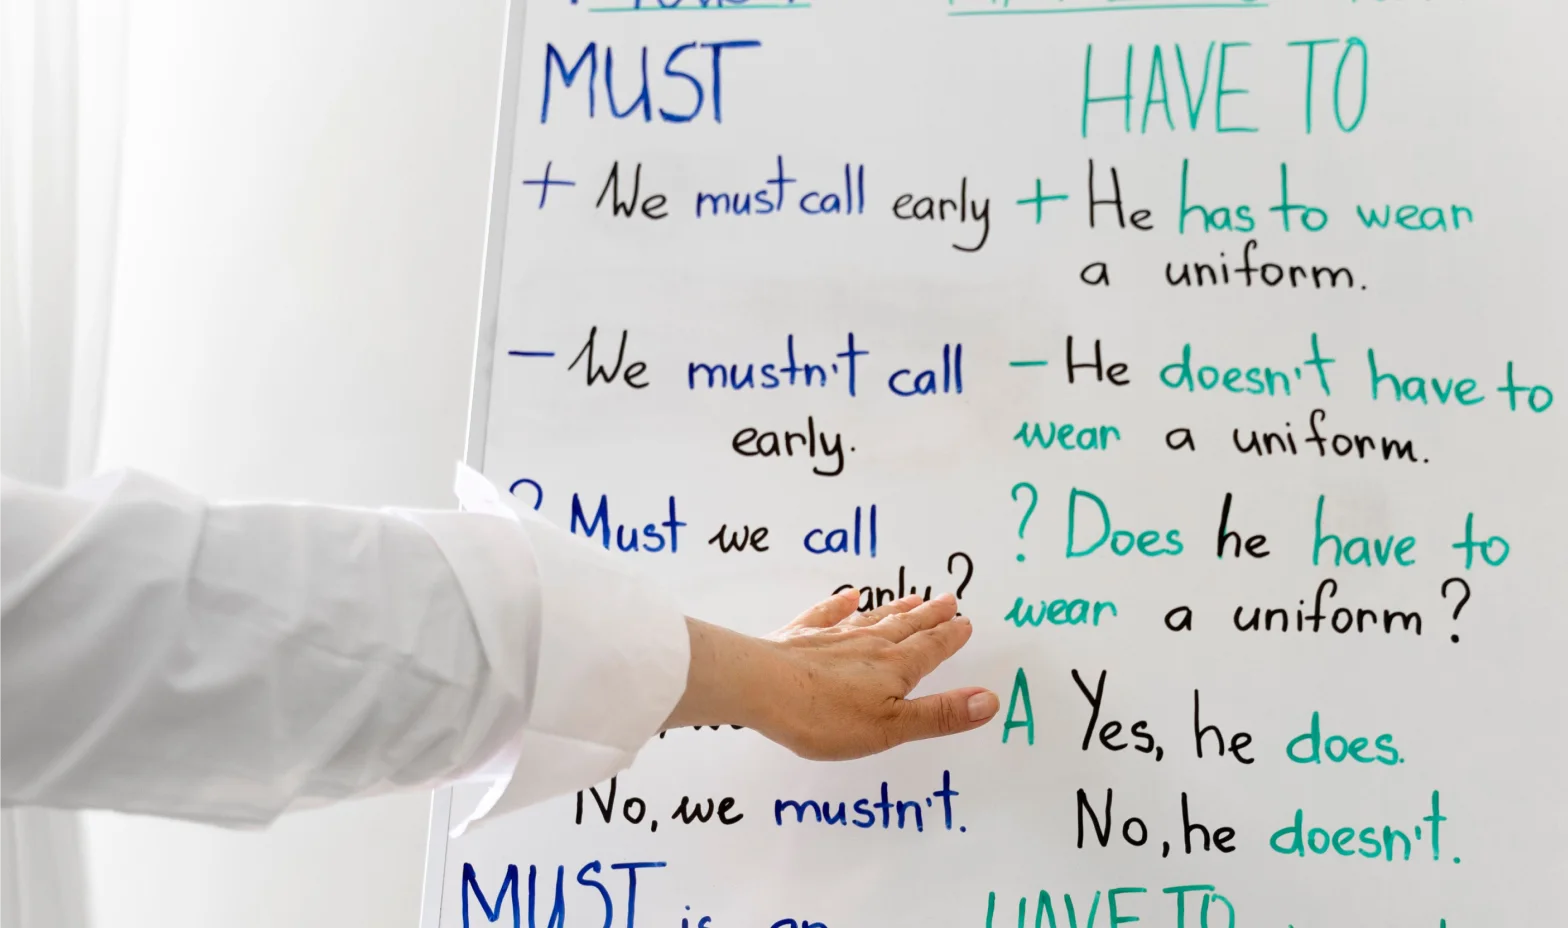 MUST
+ We must call early
- We mustn't call
early.
? Must we call
early?
No, we mustn't.
MUST is an
HAVE TO
+ He has to wear
a uniform.
- He doesn't have to
wear a uniform.
? Does he have to
wear a uniform?
A Yes, he does.
No, he doesn't.
HAVE TO